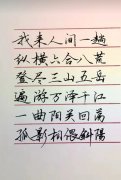 我来人间一趟
纵横六合八荒
登尽三山五岳
遍游万泽千江
一曲阳关回荡
孤影相偎斜阳